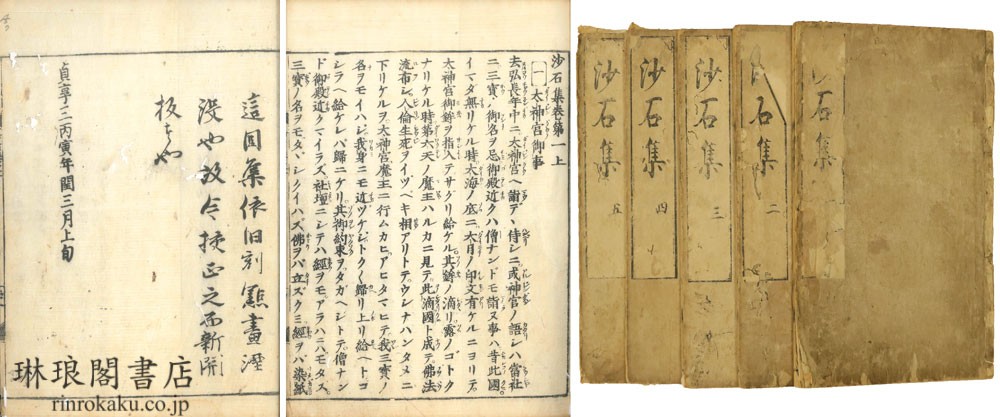 這回集依旧刻點畫湮
没也故令挍正之而新開
板者也
貞享三丙寅年閏三月上旬
琳琅閣書店
rinrokaku.co.jp
沙石集卷第一上
一 太神宮御事
去弘長年中ニ太神宮ヘ詣デヽ侍シニ或神官ノ語シハ當社
ニ三寶ノ御名ヲ忌御殿近クハ僧ナンドモ詣ヌ事ハ昔此國
イマタ無リケル時大海ノ底ニ大日ノ印文有ケルニヨリテ
太神宮御鉾ヲ指入テサグリ給ケル其鉾ノ滴リ露ノゴトク
ナリケル時第六天ノ魔王ハルカニ見テ此滴國ト成テ佛法
流布シ人倫生死ヲイヅベキ相アリトテウシナハンタメニ
下リケルヲ太神宮魔王ニ行ムカヒアヒタマヒテ我三寶ノ
名ヲモイハシ我身ニモ近ツケジトク〱歸リ上リ給ヘトコ
シラヘ給ケレバ歸ニケリ其御約束ヲタガヘジトテ僧ナン
ド御殿近クマイラズ社壇ニシテハ經ヲモアラハニハモタス
三寶ノ名ヲモタヽシクイハズ佛ヲバ立ズクミ經ヲバ染紙
石集
石集 二
沙石集 三
沙石集 四
沙石集 五